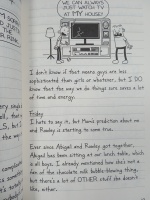 WE CAN ALWAYS
JUST WATCH TV
AT MY HOUSE!
I don't know if that means guys are less
sophisticated than girls or whatever, but I DO
know that the way we do things sure saves a lot
of time and energy.
Today
I hate to say it, but Mom's prediction about me
and Rowley is starting to come true.
Ever since Abigail and Rowley got together,
Abigail has been sitting at our lunch table, which
is all boys. I already mentioned how she's not a
fan of the chocolate milk bubble-blowing thing,
but there's a lot of OTHER stuff she doesn't
like, either.